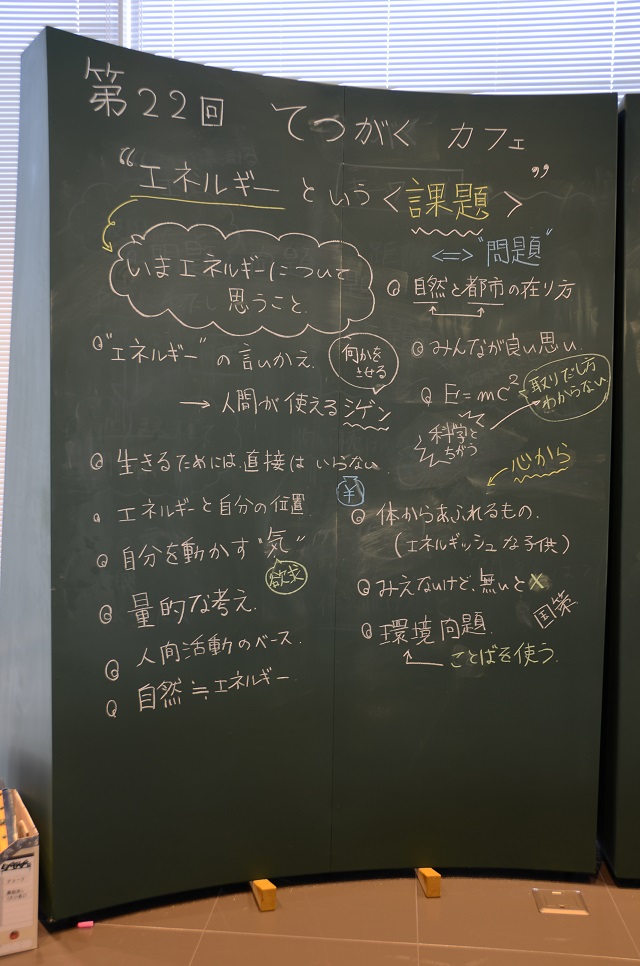 第22回 てつがく カフェ
“エネルギー という〈課題〉”
⇔ “問題”
いまエネルギーについて
思うこと.
“エネルギー” の言いかえ.
何かを
させる
→ 人間が使えるシゲン
生きるためには、直接は いらない
¥
エネルギーと自分の位置
自分を動かす “気”
欲求
量的な考え.
人間活動のベース.
自然≒エネルギー
自然と都市の在り方
みんなが良い思い.
E=mc²
取りだし方
わからない
科学と
ちがう
心から
体からあふれるもの.
(エネルギッシュな子供)
みえないけど、無いと×
国策
環境問題.
ことばを使う.